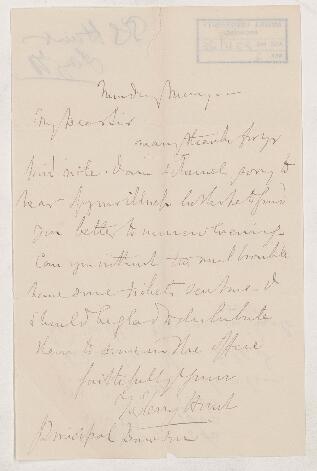 Monday Morning
My Dear Sir
many thanks for yr
kind note. I am extremely sorry to
hear of your illness but hope to find
you better to morrow evening.
Can you without too much trouble
have some tickets sent me. I
should be glad to distribute
them to some in the office
faithfully yours
T Sterry Hunt
Principal Dawson